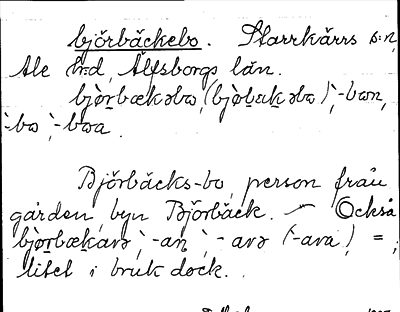 björbäckebo. Starrkärrs s:n,
Ale h:d, Älfsborgs län.
bjørbækəbɷ, (bjøbækəbɷ), -bɷn,
-bɷ, -bɷa.
Björbäcks-bo, person från
gården, byn Björbäck. — Också
bjørbækarə, -an, -arə (-ara) =,
litet i bruk dock.